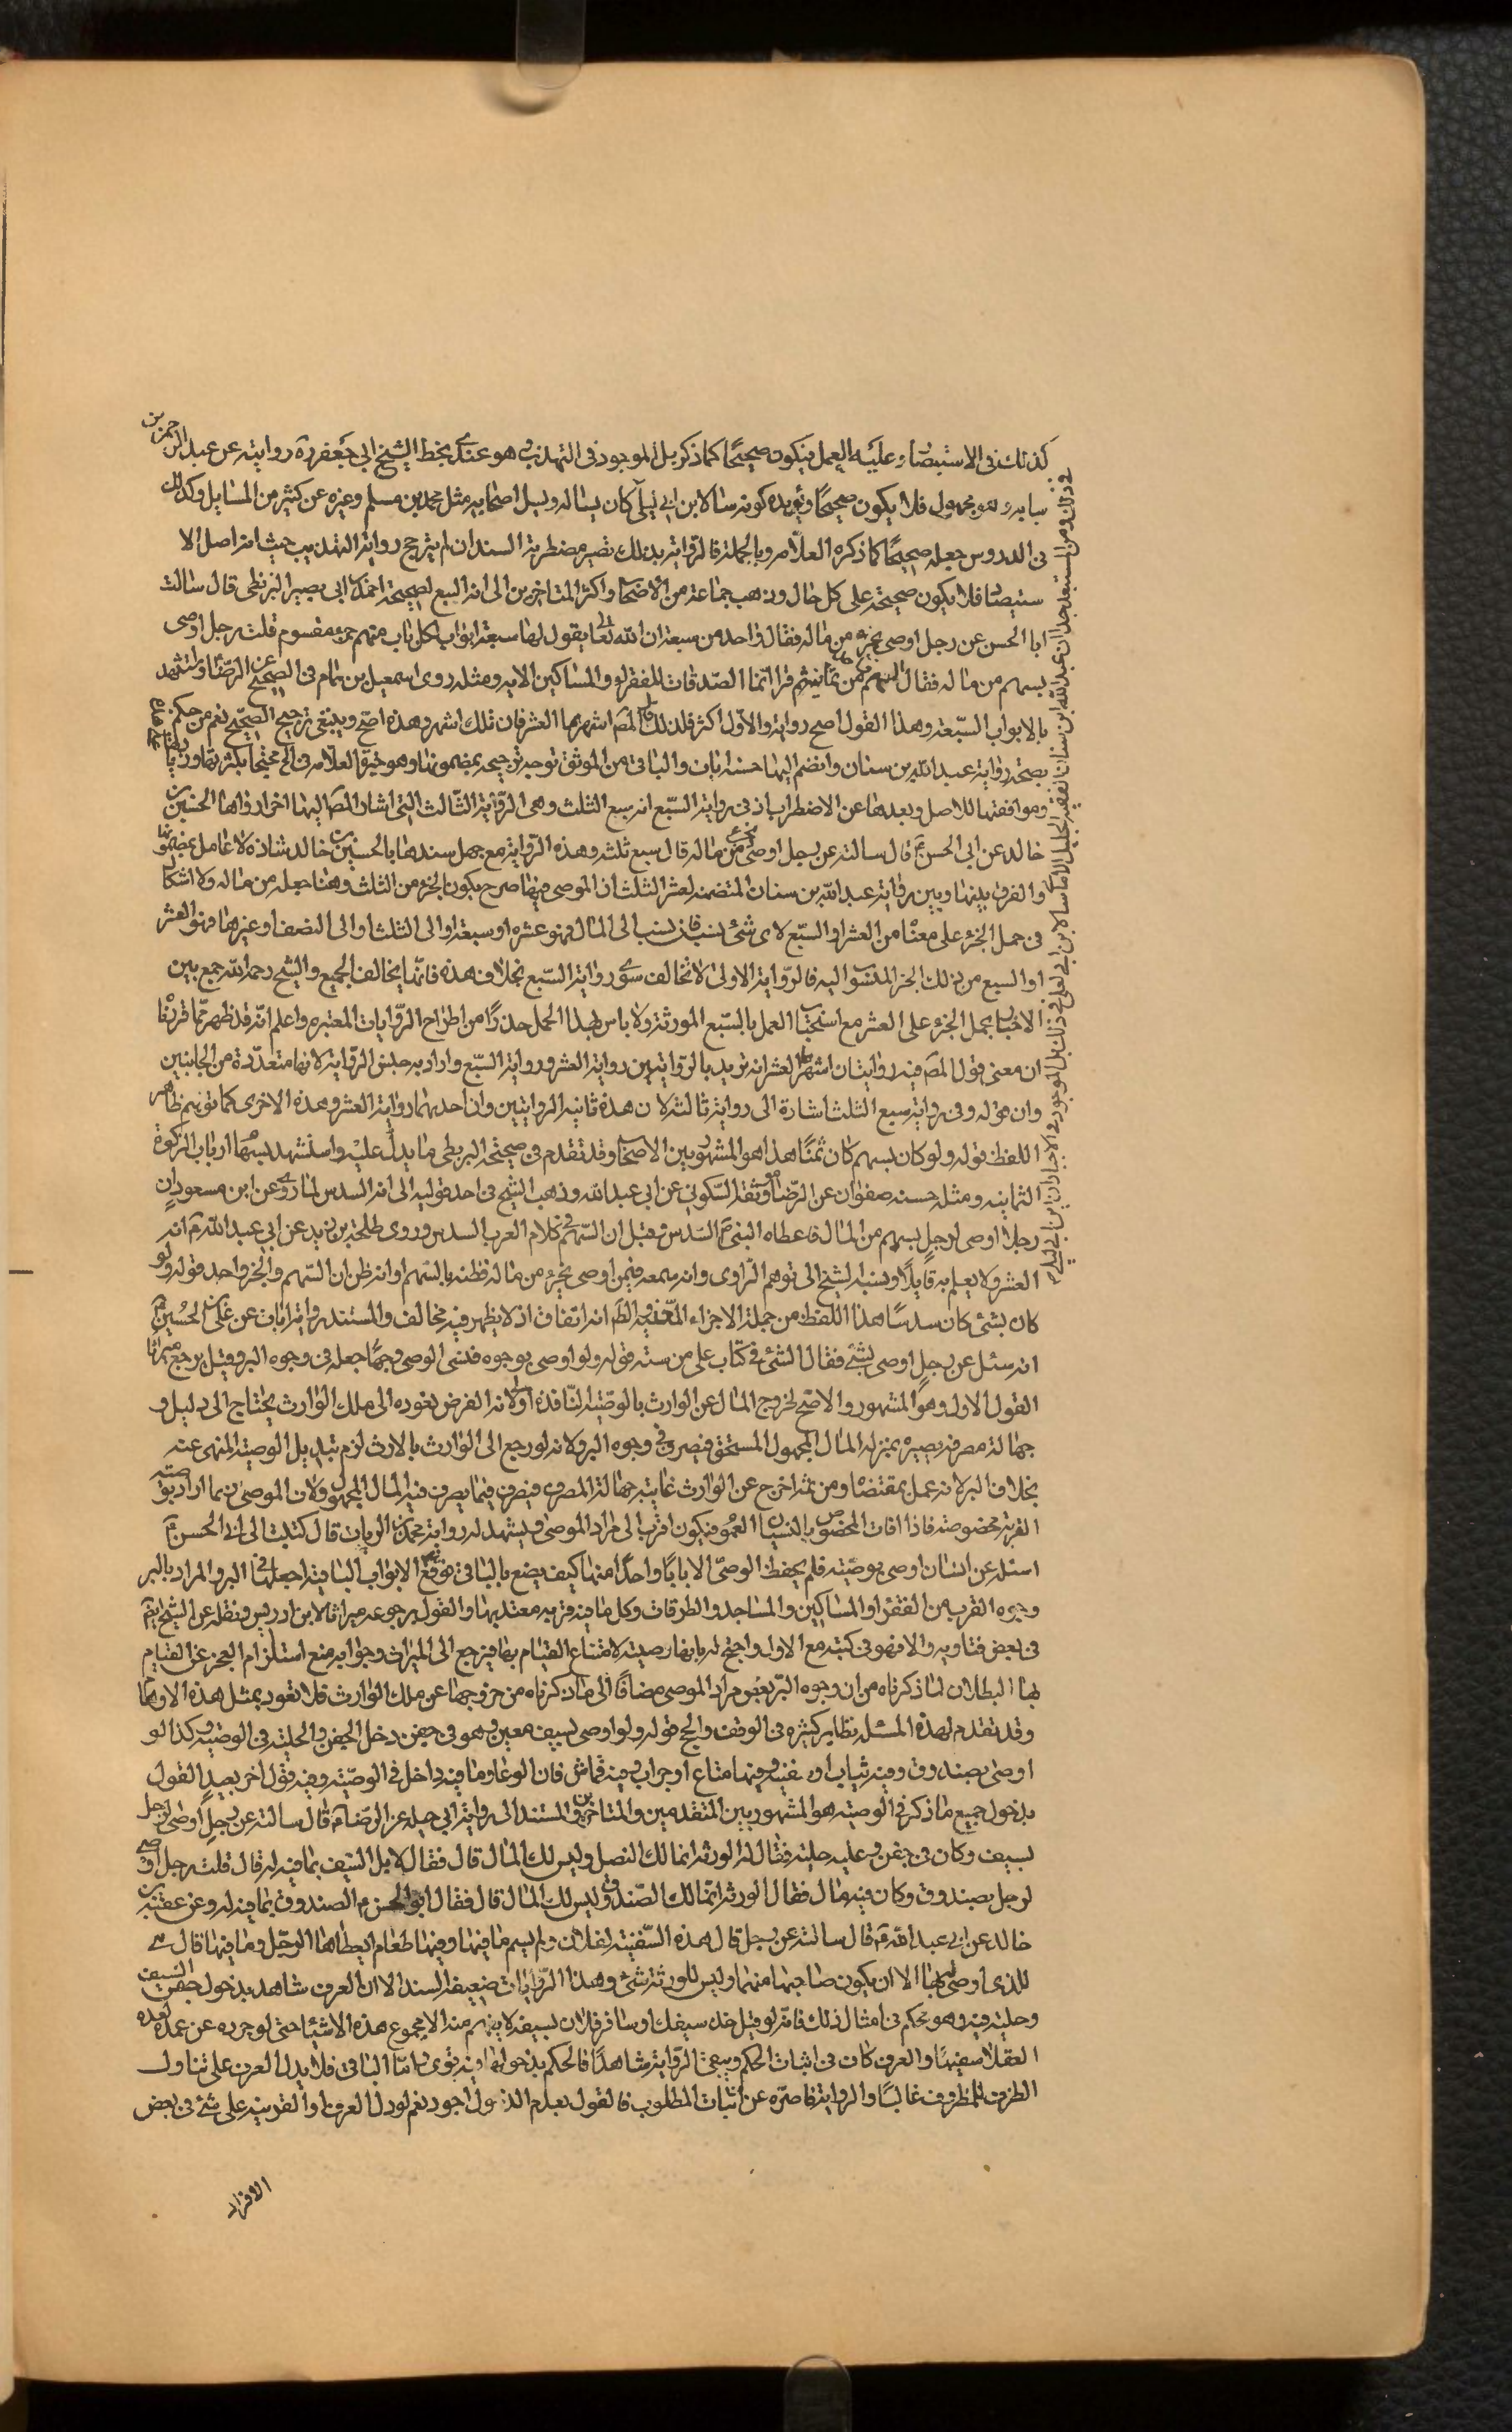 كذلك في الاستبصار وعليه العمل فيكون صحيحًا كما ذكر بل الموجود في التهذيب وهو عندي بخط الشيخ ابي جعفر ره روايته عن عبد الرحمن بن
سيابه وهو مجهول فلا يكون صحيحًا ويؤيده كونه سئال ابن ابي ليلى كان يساله ويسل اصحابه مثل محمد بن مسلم وغيره عن كثير من المسايل وكذلك
في الدروس جعله صحيحًا كما ذكره العلامه وبالجملة فالرواية بذلك تصير مضطربة السند ان لم يترجح رواية التهذيب حيث انه اصل الا
ستبصار فلا يكون صحيحة على كل حال وذهب جماعة من الاصحاب واكثر المتاخرين الى انه السبع لصحيحة احمد بن ابي نصير البزنطي قال سالت
ابا الحسن عن رجل اوصى بجزء من ماله فقال واحد من سبعة ان الله تعالى يقول لها سبعة ابواب لكل باب منهم جزء مقسوم قلت رجل اوصى
بسهم من ماله فقال السهم من ثمانية ثم قرا انما الصدقات للفقراء والمساكين الايه ومثله روى اسمعيل بن همام في الصحيح عن الرضا واستشهد
بالابواب السبعة وهذا القول اصح رواية والاول اكثر فلذلك قال المص اشهرها العشر فان تلك اشهر وهذه اصح وينبغي ترجيح الصحيح نعم من حكم
بصحة رواية عبد الله بن سنان وانضم اليها حسنه ابان والباقي من الموثق توجه ترجيحه بمضمونها وهو خيرة العلامه في المخ محتجا بكثرتها
وموافقتها للاصل وبعدها عن الاضطراب اذ في رواية السبع انه سبع الثلث وهي الرواية الثالث التي اشار المص اليها اخرا رواها الحسين بن
خالد عن ابي الحسن ع قال سالته عن رجل اوصى بجزء من ماله قال سبع ثلثه وهذه الرواية مع جهل سندها بالحسين بن خالد شاذه لا عامل بمضمونها
والفرق بينها وبين رواية عبد الله بن سنان المتضمنه لعشر الثلث ان الموصى فيها صرح بكون الجزء من الثلث وهنا جعله من ماله ولا اشكال
في حمل الجزء على معناه من العشر او السبع لاي شئ ينسب فان نسب الى المال فهو عشره او سبعه او الى الثلث او الى النصف او غيرها فهو العشر
او السبع من ذلك الجزء المنسوب اليه فالرواية الاولى لا تخالف سوى رواية السبع بخلاف هذه فانها يخالف الجميع والشيخ رحمه الله جمع بين
الاخبار بحمل الجزء على العشر مع استحباب العمل بالسبع للورثة ولا باس بهذا الحمل حذرًا من اطراح الروايات المعتبره واعلم انه قد ظهر مما قررناه
ان معنى قول المص فيه روايتان اشهرها العشر انه يريد بالروايتين رواية العشر ورواية السبع واراد به جنس الرواية لانها متعددة من الجانبين
وان قوله وفي رواية سبع الثلث اشارة الى رواية ثالثة لا ن هذه ثانية الروايتين وان احديهما رواية العشر وهذه الاخرى كما توهم ظاهر
اللفظ قوله ولو كان بسهم كان ثمنًا هذا هو المشهور بين الاصحاب وقد تقدم في صحيحة البزنطي ما يدل عليه واستشهد بسهام ارباب الزكوة
الثمانيه ومثله حسنه صفوان عن الرضا وموثقة السكوني عن ابي عبد الله وذهب الشيخ في احد قوليه الى انه السدس لما روى عن ابن مسعود ان
رجلا اوصى لرجل بسهم من المال فاعطاه النبي ص السدس وقيل ان السهم في كلام العرب السدس وروى طلحة بن زيد عن ابي عبد الله ع انه
العشر ولا يعلم به قايلا ونسبه الشيخ الى توهم الراوى وانه سمعه فيمن اوصى بجزء من ماله فظنه بالسهم او انه ظن ان السهم والجزء واحد قوله ولو
كان بشئ كان سدسًا هذا اللفظ من جملة الاجزاء المتفق عليها الظ انه اتفاق اذ لا يظهر فيه مخالف والمستند رواية ابان عن علي بن الحسين ع
انه سئل عن رجل اوصى بشئ فقال الشئ في كتاب علي من سته قوله ولو اوصى بوجوه فنسى الوصي وجهًا جعله في وجوه البر وقيل يرجع ميراثا
القول الاول وهو المشهور والاصح لخروج المال عن الوارث بالوصيه النافذه اولا لانه الفرض فعوده الى ملك الوارث يحتاج الى دليل و
جهالة مصرفه يصيره بمنزله المال المجهول المستحق فيصرف في وجوه البر ولانه لو رجع الى الوارث بالارث لزم تبديل الوصيه المنهى عنه
بخلاف البر لانه عمل بمقتضاها ومن ثم اخرج عن الوارث غايته جهالة المصرف فيصرف فيما يصرف فيه المال المجهول ولان الموصى ربما اراد بوصيته
القربة مخصوصة فاذا افات الخصوص بالنسيان بقى العموم فيكون اقرب الى مراد الموصى ويشهد له رواية محمد بن الريان قال كتبت الى ابي الحسن ع
اسئله عن انسان اوصى بوصيته فلم يحفظ الوصى الا بابا واحدًا منها كيف يصنع بالباقي فوقع ع الابواب الباقيه اجعلها في البر والمراد بالبر
وجوه القرب من الفقراء والمساكين والمساجد والطرقات وكل ما فيه قربه معتد بها والقول برجوعه ميراثا لابن ادريس ونقله عن الشيخ ايضا
في بعض فتاويه والا فهو في كتبه مع الاول واحتج له بانها وصيته لامتناع القيام بها فيرجع الى الميراث وجوابه منع استلزام العجز عن القيام
بها البطلان لما ذكرناه من ان وجوه البر بعض مراد الموصى مضافًا الى ما ذكرناه من خروجها عن ملك الوارث فلا تعود بمثل هذه الاوهام
وقد تقدم لهذه المسئله نظاير كثيره في الوقف والحج قوله ولو اوصى بسيف معين وهو في جفن دخل الجفن والحلية في الوصيه وكذا لو
اوصى بصندوق وفيه ثياب او سفينه وفيها متاع او جراب وفيه قماش فان الوعاء وما فيه داخل في الوصيته وفيه قول اخر بعيد القول
بدخول جميع ما ذكر في الوصيه هو المشهور بين المتقدمين والمتاخرين والمستند الى رواية ابي جميله عن الرضا ع قال سالته عن رجل اوصى لرجل
بسيف وكان في جفن وعليه حلية فقال له الورثه انما لك النصل وليس لك المال قال فقال لا بل السيف بما فيه له قال قلت رجل اوصى
لرجل بصندوق وكان فيه مال فقال الورثه انما لك الصندوق وليس لك المال قال فقال ابو الحسن ع الصندوق بما فيه له وعن عقبة بن
خالد عن ابي عبد الله ع قال سالته عن رجل قال هذه السفينه لفلان ولم يسم ما فيها وفيها طعام ايعطاها الرجل وما فيها قال هي
للذى اوصى له بها الا ان يكون صاحبها متهما وليس للورثة شئ وهذه الروايات ضعيفة السند الا ان العرف شاهد بدخول جفن السيف
وحليته فيه وهو محكم في امثال ذلك فانه لو قيل خذ سيفك او سافر فلان بسيفه لا يفهم منه الا مجموع هذه الاشياء حتى لو جرده عن غمده عده
العقلا سفيهًا والعرف كان في اثبات الحكم ويبقى الرواية شاهدًا فالحكم بدخولها فيه قوى واما الباقي فلا يدل العرف على تناول
الظرف للمظروف غالبًا والرواية قاصره عن اثبات المطلوب فالقول بعدم الدخول اجود نعم لو دل العرف او القرينه على شئ في بعض
الافراد